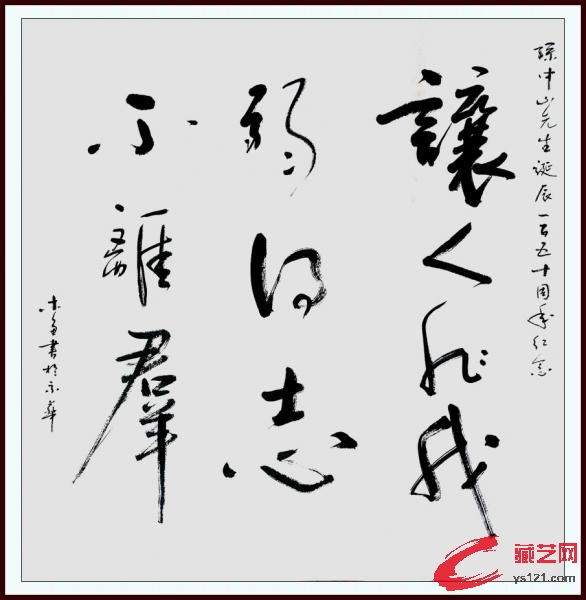 孫中山先生诞辰一百五十周年纪念
讓人非我
弱得志
不離羣
書於京華
藏艺网
ys121.com